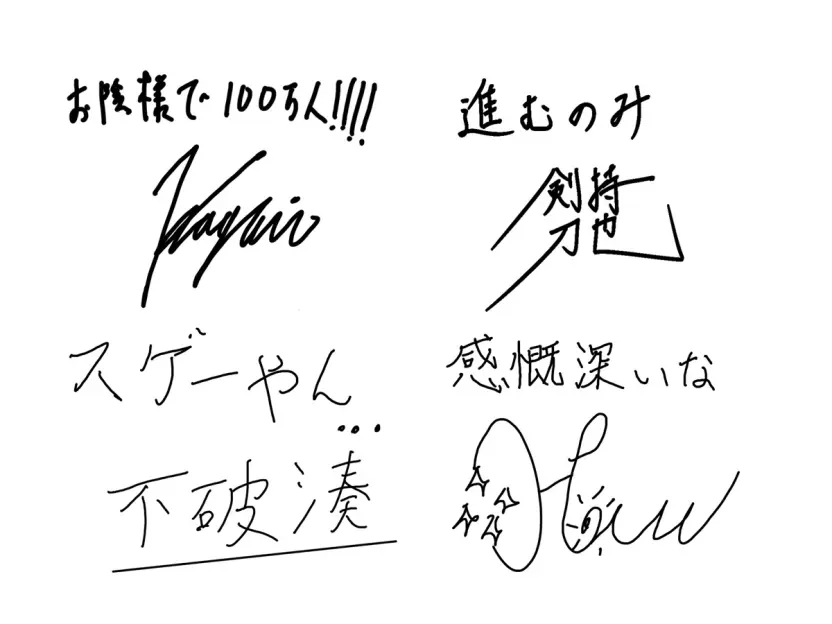 お陰様で100万人!!!!
Kagami
進むのみ
剣持
刀也
スゲーやん...
不破湊
感慨深いな